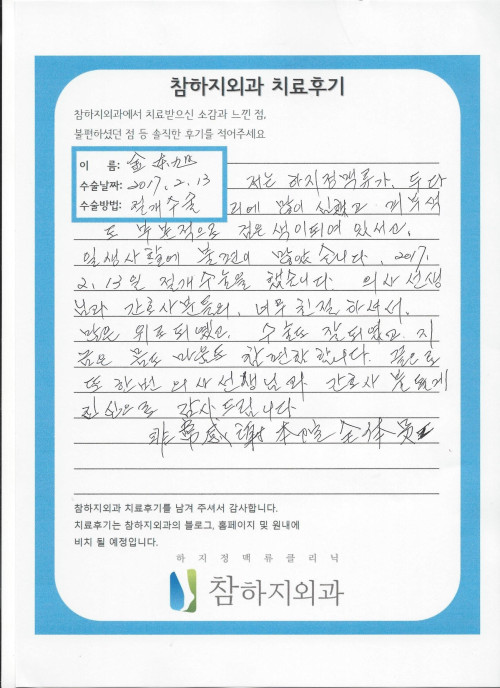 참하지외과 치료후기
참하지외과에서 치료받으신 소감과 느낀 점,
불편하셨던 점 등 솔직한 후기를 적어주세요
이 름: 金
수술날짜: 2017, 2. 13
수술방법: 절개수술
저는 하지정맥류가, 두 다
리에 많이 심했고 피부색
도 부분적으로 검은 색이되어 있서고,
일생사활에 불편이 많았습니다, 2017,
2. 13일 절개수술을 했습니다. 의사선생
님과 간호사분들의, 너무 친절하셔서,
많은 위로되였고, 수술도 잘되였고 지
금은 몸도 마음도 참 편안합니다. 끝으로
또 한번 의사선생님과 간호사 분들게
진심으로 감사드립니다
非常感謝 本院 全体 员工
참하지외과 치료후기를 남겨 주셔서 감사합니다.
치료후기는 참하지외과의 블로그, 홈페이지 및 원내에
비치 될 예정입니다.
하지정맥류클리닉
참하지외과